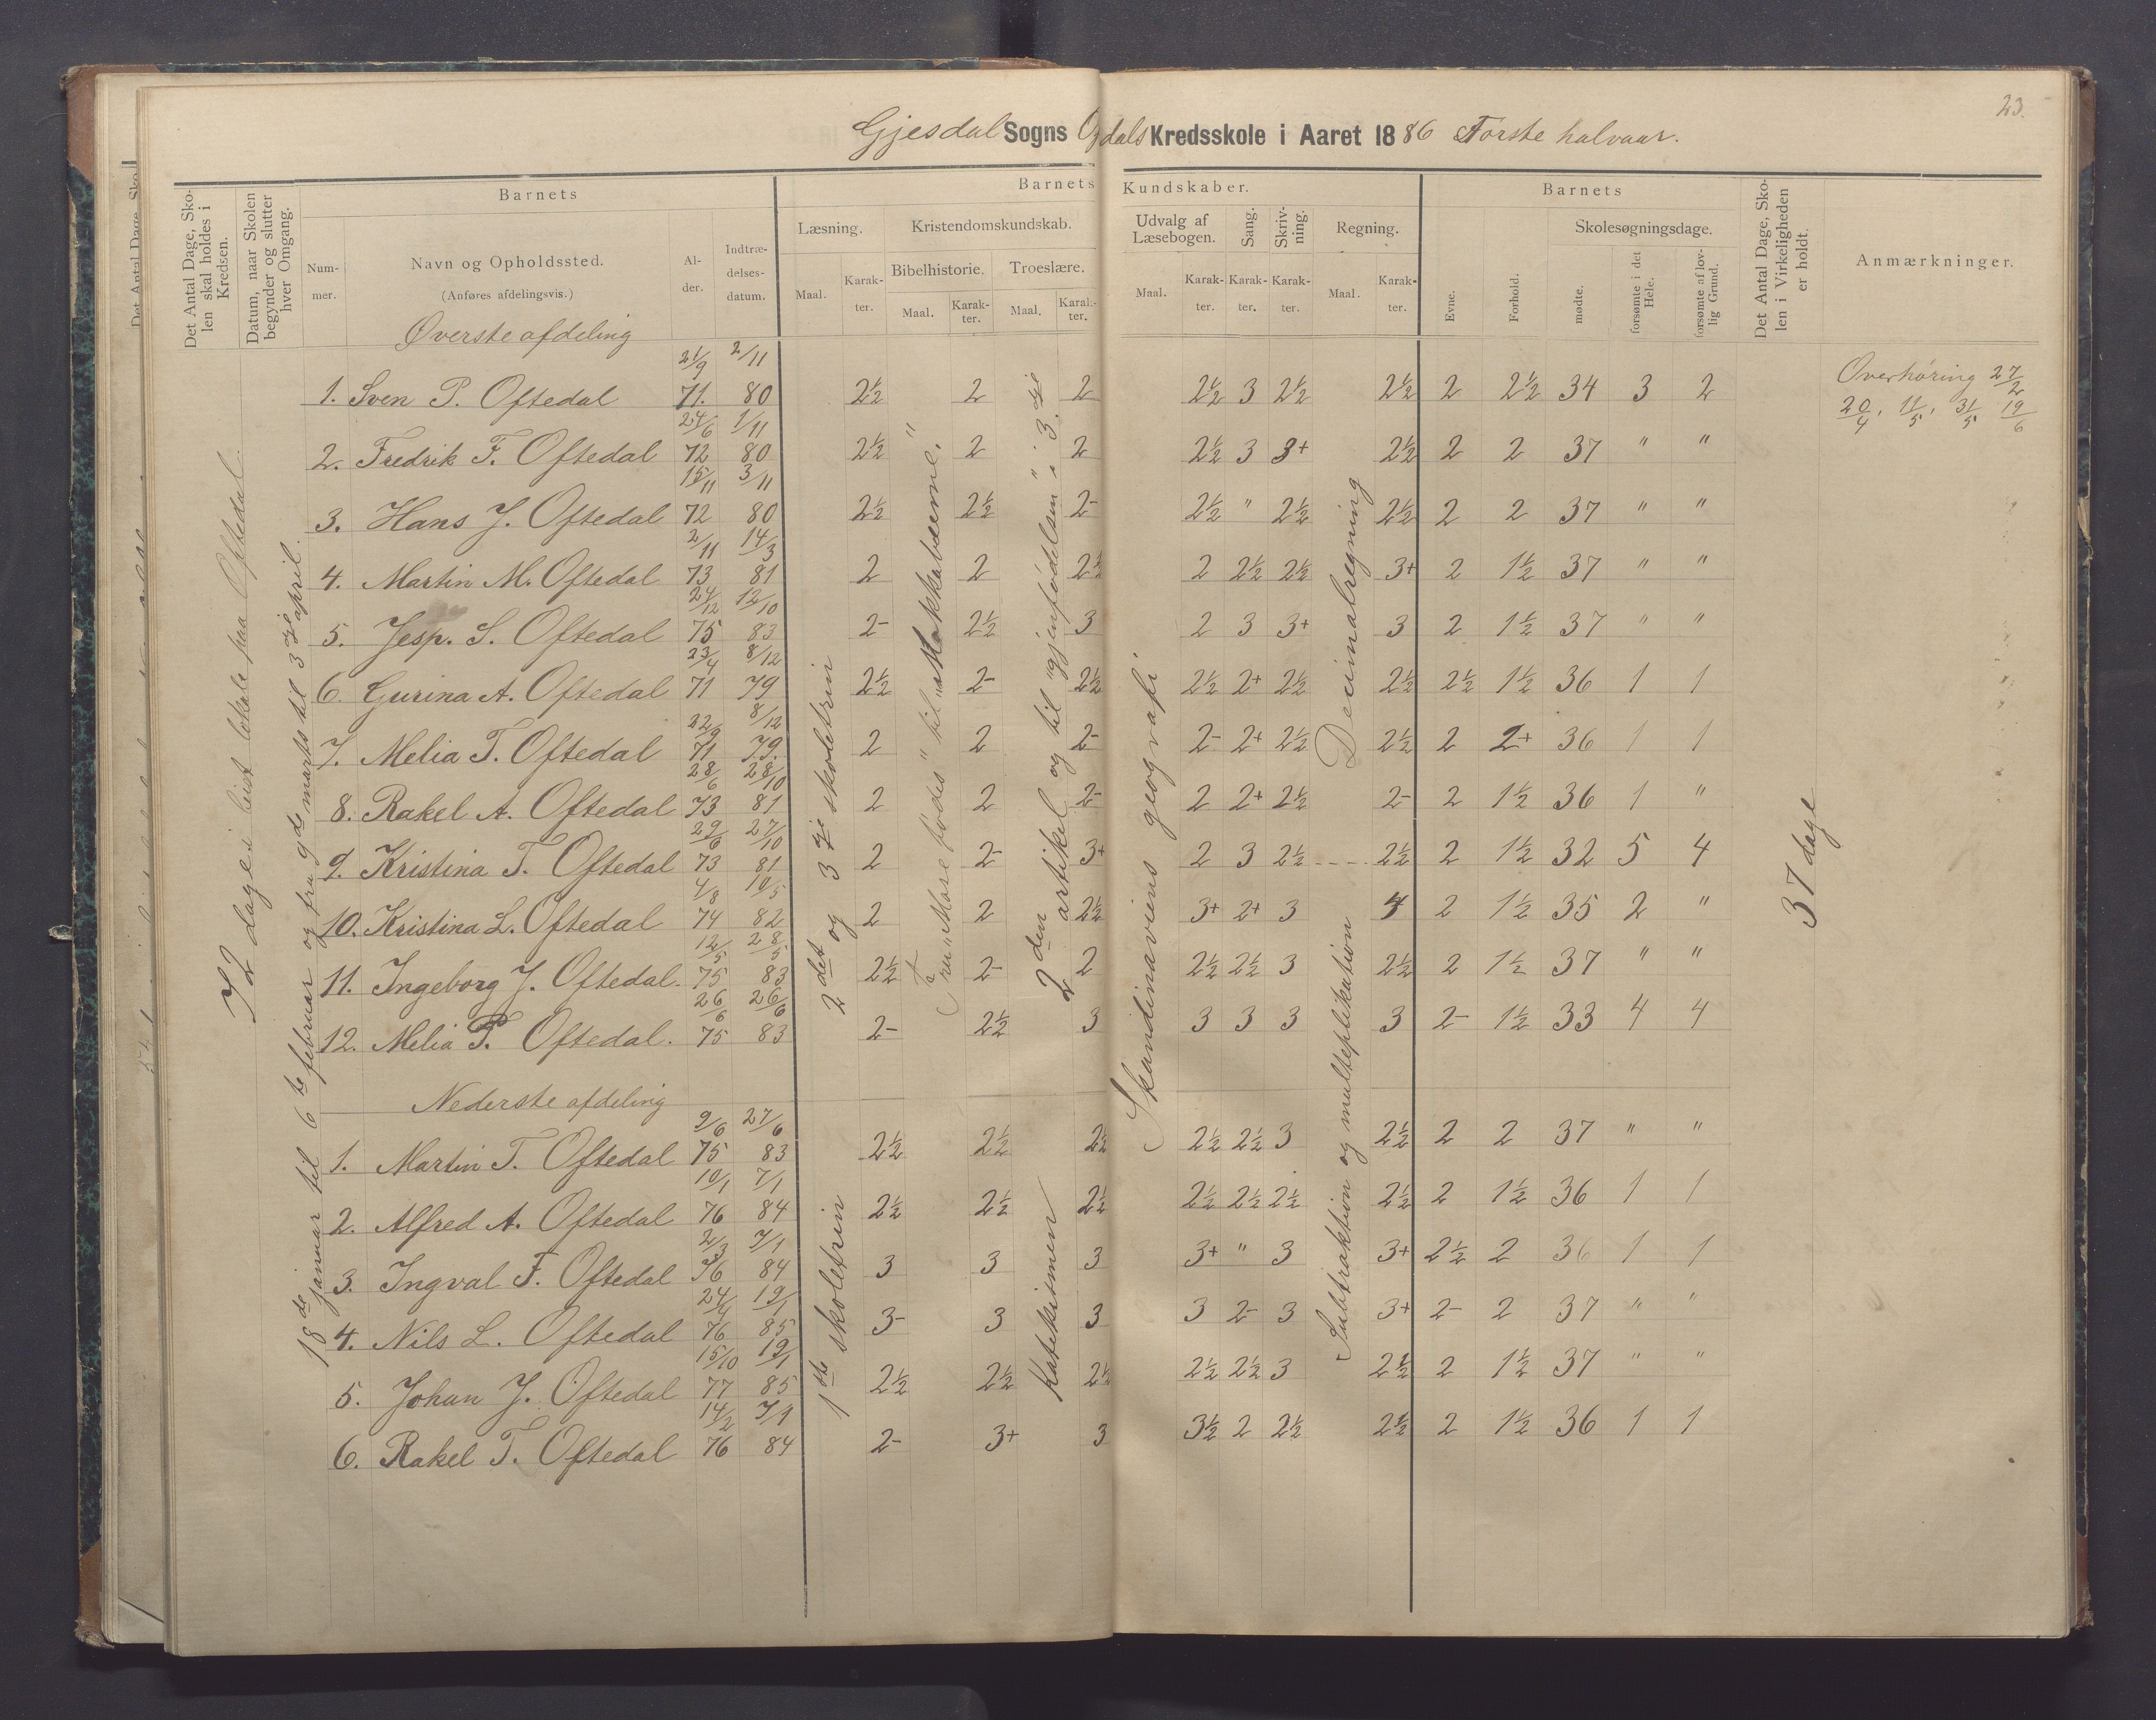 23.
Gjesdal Sogns Kredsskole i Aaret 1886 Første halvaar.
Det Antal Dage, Skolen skal holdes i Kredsen.
Datum, naar Skolen begynder og slutter hver Omgang.
Barnets
Nummer.
Navn og Opholdssted.
(Anføres afdelingsvis.)
Alder.
Indtrædelsesdatum.
Barnets Kundskaber.
Læsning.
Maal.
Karakter.
Kristendomskundskab.
Bibelhistorie.
Maal.
Karakter.
Troeslære.
Maal.
Karakter.
Udvalg af Læsebogen.
Maal.
Karakter.
Sang.
Karakter.
Skrivning.
Karakter.
Regning.
Maal.
Karakter.
Barnets
Evne.
Forhold.
Skolesøgningsdage.
mødte.
forsømte i det Hele.
forsømte af lovlig Grund.
Det Antal Dage, Skolen i Virkeligheden er holdt.
Anmærkninger.
72 dage i leiet lokale paa Oftedal.
18de januar til 6te februar og fra 9de marts til 3die april.
Øverste afdeling
1. Sven P. Oftedal 21/9 71. 2/11 80 2½ 2 2 2½ 3 2½ 2½ 2 2½ 34 3 2
2. Fredrik F. Oftedal 24/6 72 1/11 80 2½ 2 2 2½ 3 3+ 2½ 2 2 37 " "
3. Hans J. Oftedal 15/11 72 3/11 80 2½ 2½ 2- 2½ " 2½ 2½ 2 2 37 " "
4. Martin M. Oftedal 2/11 73 14/3 81 2 2 2½ 2 2½ 2½ 3+ 2 1½ 37 " "
5. Jesp. S. Oftedal 24/12 75 12/10 83 2- 2½ 3 2 3 3+ 3 2 1½ 37 " "
6. Gurina A. Oftedal 23/4 71 8/12 79 2½ 2- 2½ 2½ 2+ 2½ 2½ 2½ 1½ 36 1 1
7. Melia T. Oftedal 22/9 71 8/12 79. 2 2 2- 2- 2+ 2½ 2½ 2 2+ 36 1 1
8. Rakel A. Oftedal 28/6 73 28/10 81 2 2 2- 2 2+ 2½ 2- 2 1½ 36 1 "
9. Kristina T. Oftedal 29/6 73 27/10 81 2 2- 3+ 2 3 2½ 2½ 2 1½ 32 5 4
10. Kristina L. Oftedal 4/8 74 10/5 82 2 2 2½ 3+ 2+ 3 4 2 1½ 35 2 "
11. Ingeborg J. Oftedal. 12/5 75 28/5 83 2½ 2- 2 2½ 2½ 3 2½ 2 1½ 37 " "
12. Melia P. Oftedal. 26/6 75 26/6 83 2- 2½ 3 3 3 3 3 2- 1½ 33 4 4
2det og 3die skoletrin
Fra „Mose fødes" til „Makkabæerne."
2den artikel og til "gjenfødelsen" i 3die
Skandinaviens geografi
Decimalregning
37 dage
Overhøring 27/2
20/4, 11/5, 31/5 19/6
Nederste afdeling
1. Martin T. Oftedal 9/6 75 27/6 83 2½ 2½ 2½ 2½ 2½ 3 2½ 2 2 37 " "
2. Alfred A. Oftedal 10/1 76 7/1 84 2½ 2½ 2½ 2½ 2½ 2½ 2½ 2 1½ 36 1 1
3. Ingval F. Oftedal 2/3 76 7/1 84 3 3 3 3+ " 3 3+ 2½ 2 36 1 1
4. Nils L. Oftedal 24/4 76 19/1 85 3- 3 3 3 2- 3 3+ 2- 2 37 " "
5. Johan J. Oftedal 15/10 77 19/1 85 2½ 2½ 2½ 2½ 2½ 3 2½ 2 1½ 37 " "
6. Rakel T. Oftedal 14/2 76 7/1 84 2- 3+ 3 3½ 2 2½ 2½ 2 1½ 36 1 1
1ste skoletrin
Katekismen
Subtraktion og multeplikation